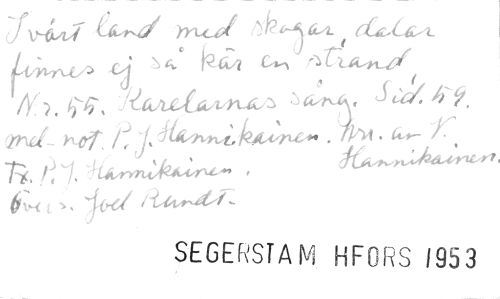 I vårt land med skogar, dalar
finnes ej så kär en strand
Nr. 55. Karelarnas sång. Sid. 59.
mel-not. P. J. Hannikainen. Arr. av V.
Hannikainen.
Tx. P. J. Hannikainen.
Övers. Joel Rundt.
SEGERSTAM HFORS 1953